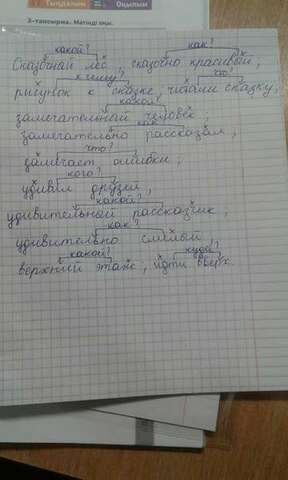 Тыңдалым
Оқылым
3-тапсырма. Мәтінді оқы.
какой? как?
Сказочный лес, сказочно красивый,
к чему? что?
рисунок к сказке, читали сказку,
какой?
замечательный человек,
как?
замечательно рассказал,
что?
замечает ошибки,
кого?
удивил друзей,
какой?
удивительный рассказчик,
как?
удивительно смелый
какой? куда?
верхний этаж, идти вверх.